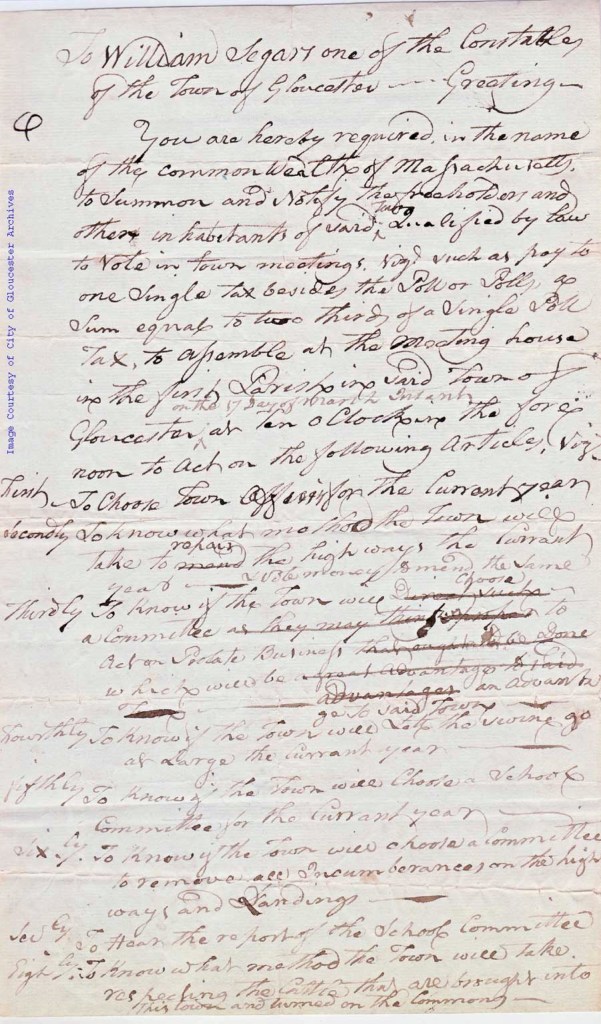 To William Segars one of the Constables
of the Town of Gloucester — Greeting —
You are hereby required, in the name
of the common Wealth of Massachusetts,
to Summon and Notify the freeholders and
other inhabitants of said Town Qualified by law
to Vote in town meetings, viz. such as pay to
one Single Tax besides the Poll or Polls, a
Sum equal to two thirds of a Single Poll
Tax, to assemble at the Meeting house
in the first Parish in said Town of
on the 17 Day of March Instant
Gloucester, at Ten o Clock in the fore
noon to Act on the following Articles, viz.
First To Choose Town officers for the Currant year
Secondly To know what method the Town will
take to mend repair the high ways the Currant
year — Vote money to mend the same
Thirdly To know if the Town will choose
a Committee as they may think proper to
Act on Business that ought to be done
which will be great advantage to said
advantages an advanta
ge to said Town
Fourthly To know if the Town will let the swine go
at Large the currant year —
fifthly To know if the Town will Choose a School
Committee for the Currant year
Six ly. To Know if the Town will choose a Committee
to remove all Incumberances on the high
ways and Landings —
Sev ly To Hear the report of the School Committee
Eight ly. To Know what method the Town will take
respecting the Cattle that are brought into
this town and turned on the Commons —
Image Courtesy of City of Gloucester Archives